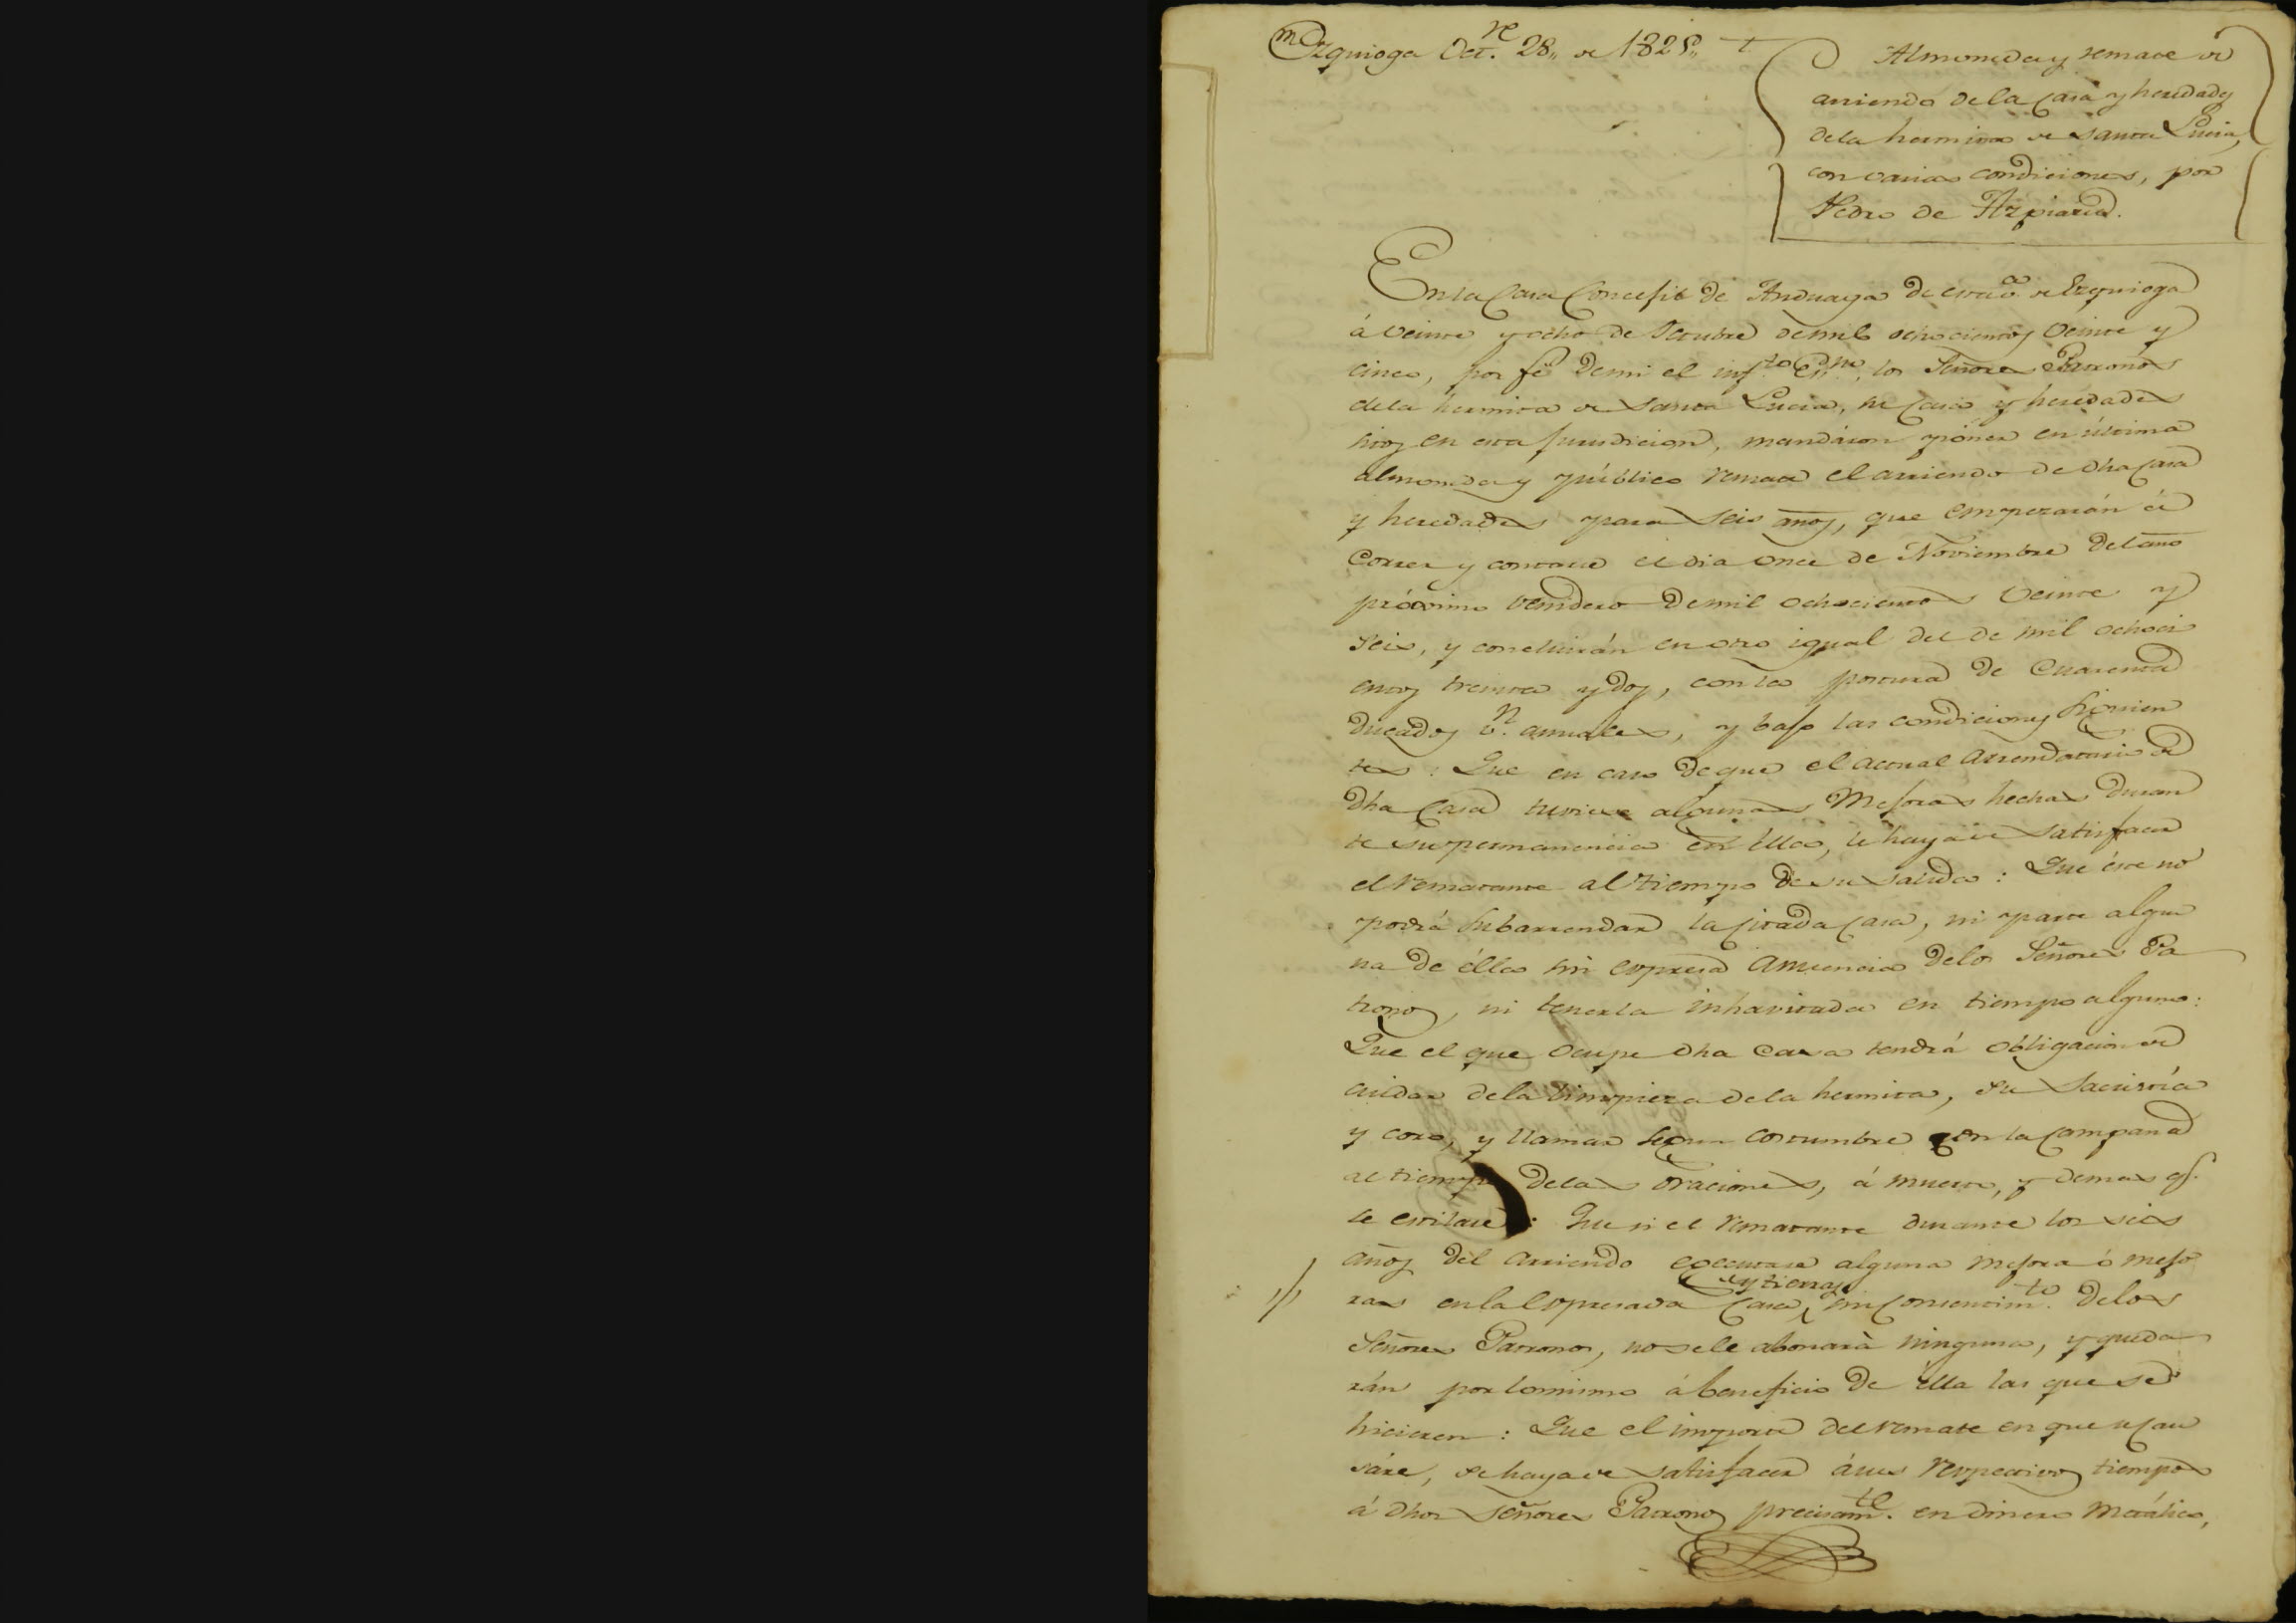 Ezquioga Oct.re 28,, de 1825,,
Almoneda y remate de
arriendo de la Casa y heredads
de la hermita de Santa Lucia,
con varias condiciones, por
Pedro de Azpiazu.
En la Casa Concejil de Anduaga de esta v.a de Ezquioga
á veinte y ocho de Octubre de mil ochocientos veinte y
cinco, por fé de mi el inf.to Es.no, los Señores Patronos
de la hermita de Santa Lucia, su Casa y heredades
sitos en esta Jurisdicion, mandáron póner en última
almoneda y público remate el arriendo de dha Casa
y heredades para seis años, que empezarán á
Correr y contarse el dia once de Noviembre del año
próximo venidero de mil ochocientos veinte y
seis, y concluirán en otro igual del de mil ochoci
entos treinta y dos, con la postura de Cuarenta
Ducados v.n annales, y bajo las condiciones siguien
tes: Que en caso de que el actual Arrendatario de
Dha Casa tuviese algunas Mejoras hechas duran
te su permanencia en ella, le haya de satisfacer
el rematante al tiempo de su salida: Que éste no
podrá Subarrendar la citada Casa, ni parte algu
na de élla sin expresa Anuencia de los Señores Pa
tronos, ni tenerla inhavitada en tiempo alguno:
Que el que Ocupe dha Casa tendrá obligacion de
cuidar de la limpieza de la hermita, su Sacristía
y coro, y llamar segun costumbre con la Campana
al tiempo de las Oraciones, á muerto, y demas q.
se estilare: Que si el rematante durante los seis
años del Arriendo executare alguna mejora ó mejo
y tierras
ras en la expresada Casa, sin Consentim.to de los
Señores Patronos, no se le abonarà ninguna, y queda
rán por lo mismo á beneficio de ella las que se
hicieren: Que el importe del remate en que se Cau
sáre, se haya de satisfacer á sus respectivos tiempos
á dhos Señores Patronos precisam.te en dinero Metálico,